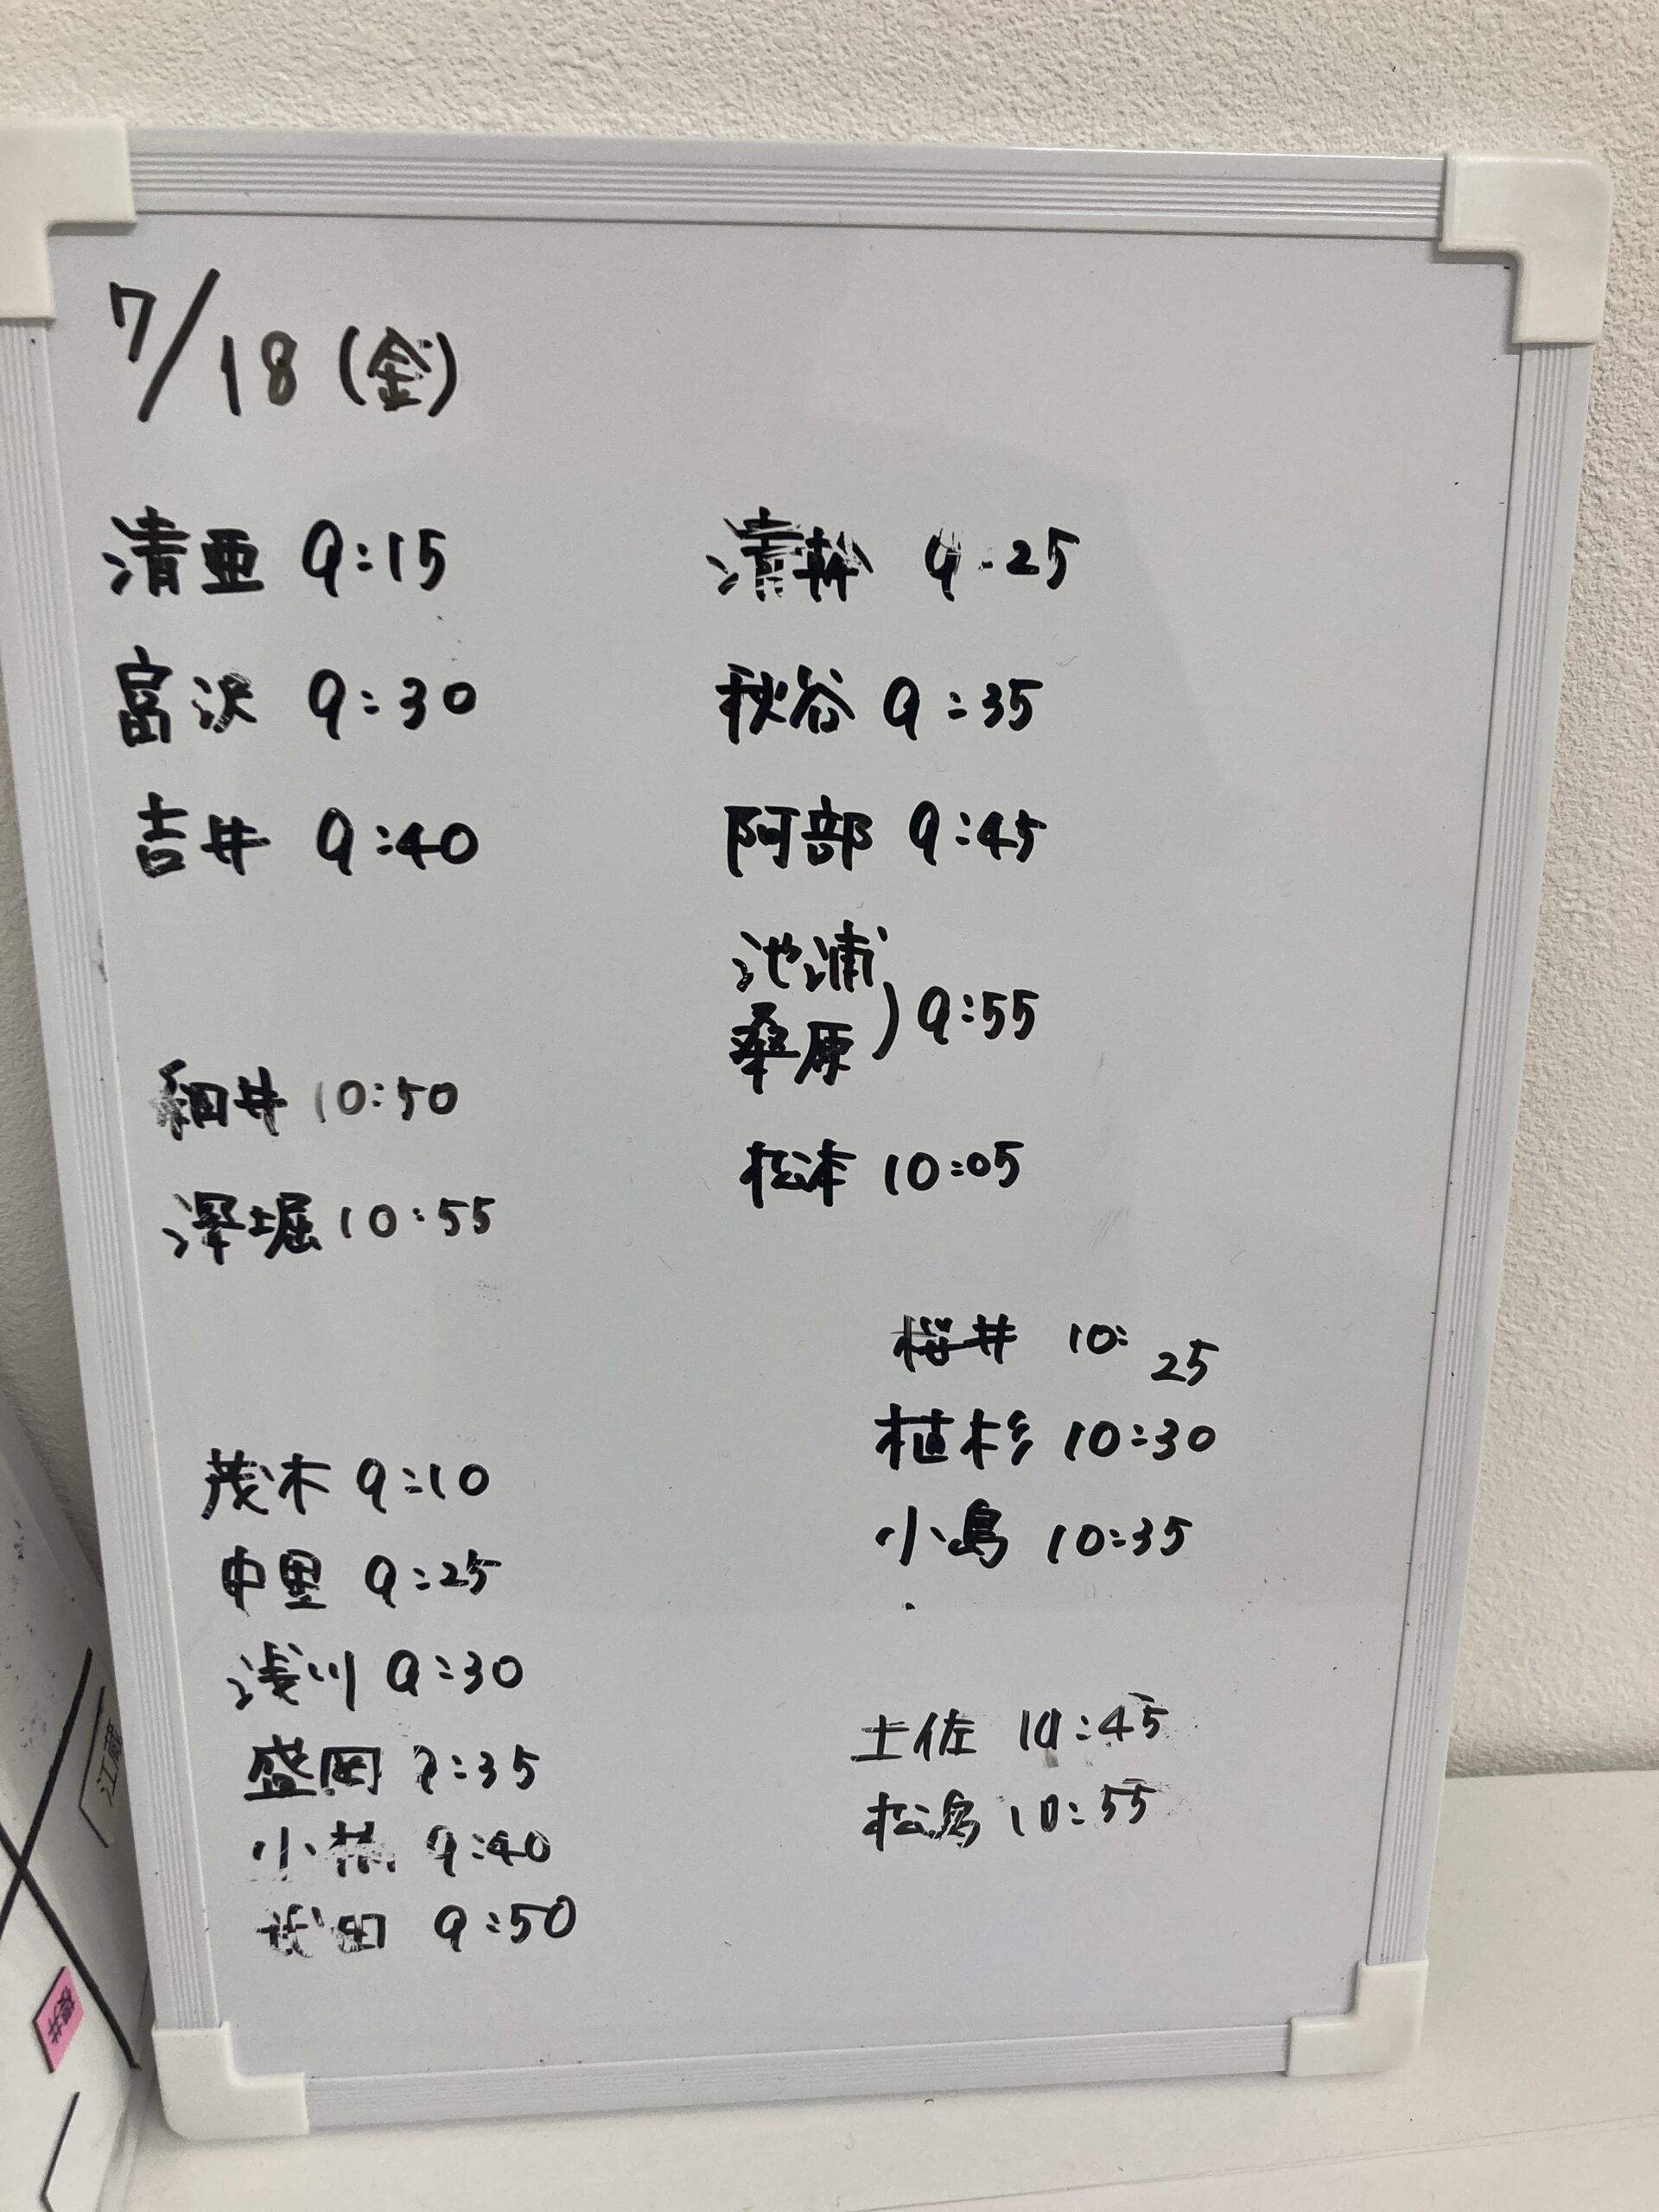 7/18(金)
清亜 9:15
富沢 9:30
吉井 9:40
細井 10:50
澤堀 10:55
茂木 9:10
中里 9:25
浅川 9:30
盛岡 9:35
小林 9:40
9:50
9:25
秋谷 9:35
阿部 9:45
池浦
桑原 ) 9:55
松本 10:05
桜井 10:25
植杉 10:30
小島 10:35
土佐 10:45
松島 10:55
桜井